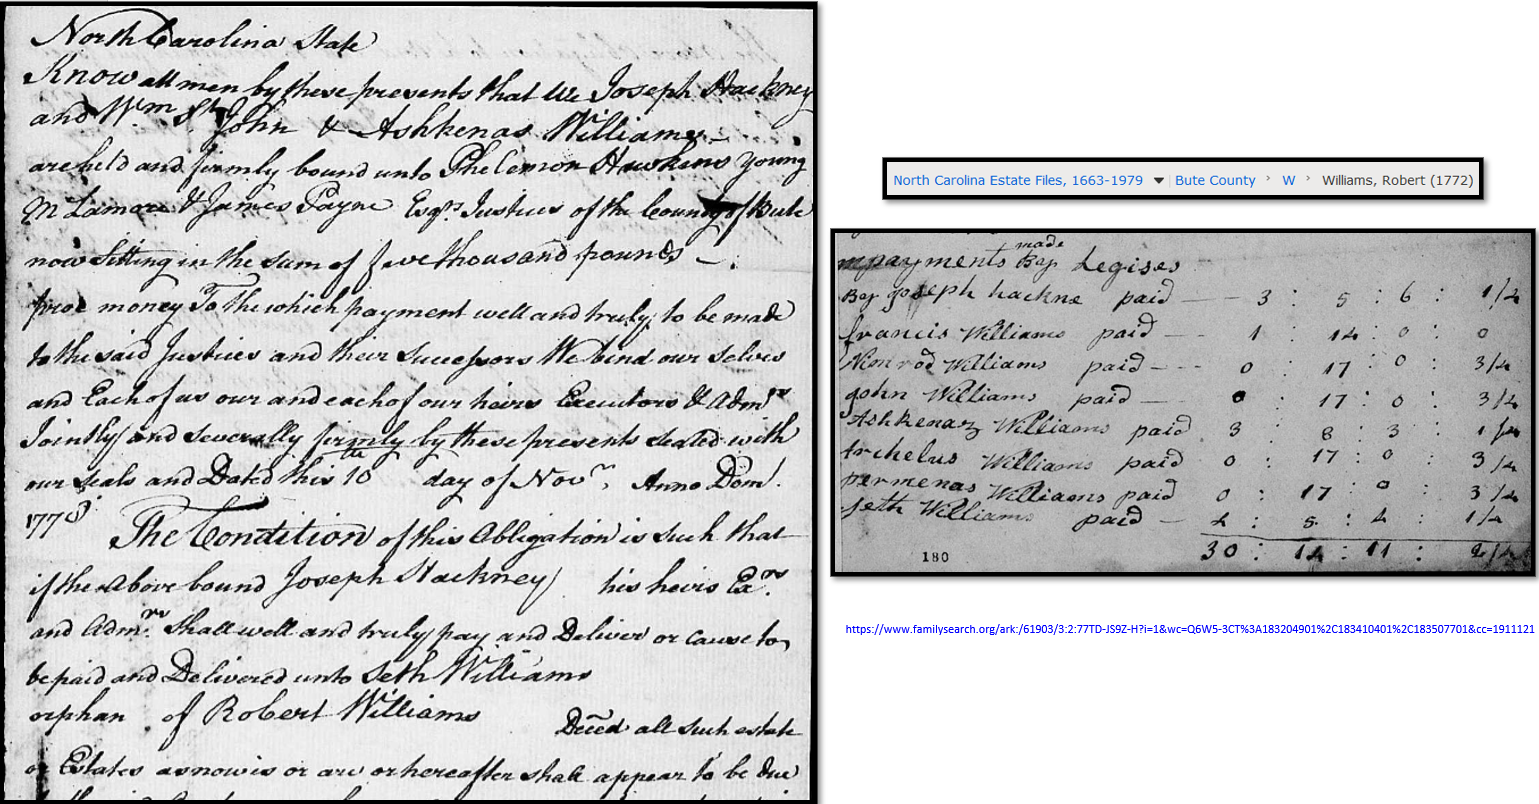 North Carolina State
Know all men by these presents that We Joseph Hackney
and Wm St John & Ashkenas Williams
are held and firmly bound unto Philemon Hawkins Young
McLamore & James Payne Esqrs Justices of the County of Bute
now sitting in the sum of five thousand pounds
proc money To the which payment well and truly to be made
to the said Justices and their successors We bind our selves
and Each of us our and each of our heirs Executors & Admrs
Jointly and severally firmly by these presents sealed with
our seals and Dated this 10th day of Novr Anno Dom!
The Condition of this Obligation is such that
if the above bound Joseph Hackney his heirs Exrs
and Admrs Shall well and truly pay and Deliver or cause to
be paid and Delivered unto Seth Williams
orphan of Robert Williams Deced all such estate
or Estates as now is or are or hereafter shall appear to be due
North Carolina Estate Files, 1663-1979 Bute County › W › Williams, Robert (1772)
made
payments By Legises
By goseph hackne paid 3 : 5 : 6 : 1/4
francis Williams paid 1 : 14 : 0 : 0
Nimrod Williams paid 0 : 17 : 0 : 3/4
gohn Williams paid 0 : 17 : 0 : 3/4
Ashkenaz Williams paid 3 : 8 : 3 : 1/4
Archelus Williams paid 0 : 17 : 0 : 3/4
permenas Williams paid 0 : 17 : 0 : 3/4
Seth Williams paid 5 : 1/4
180 30 : 14 : 11 : 2/4
https://www.familysearch.org/ark:/61903/3:2:77TD-JS9Z-H?i=1&wc=Q6W5-3CT%3A183204901%2C183410401%2C183507701&cc=1911121